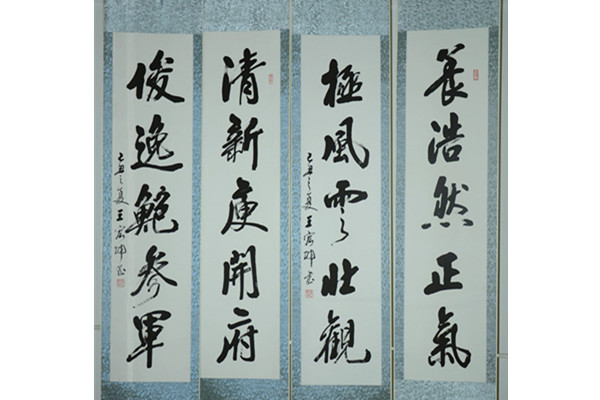 養浩然正氣
極風雲壯觀
己丑之夏王書
清新庾開府
俊逸鮑參軍
己丑之夏王書